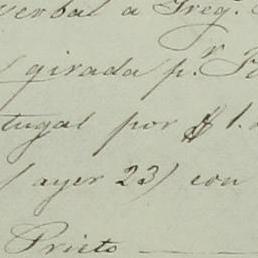 verbal a Greg.
girada p.r F
tugal por $ 1.
(ayer 23) con
Prieto